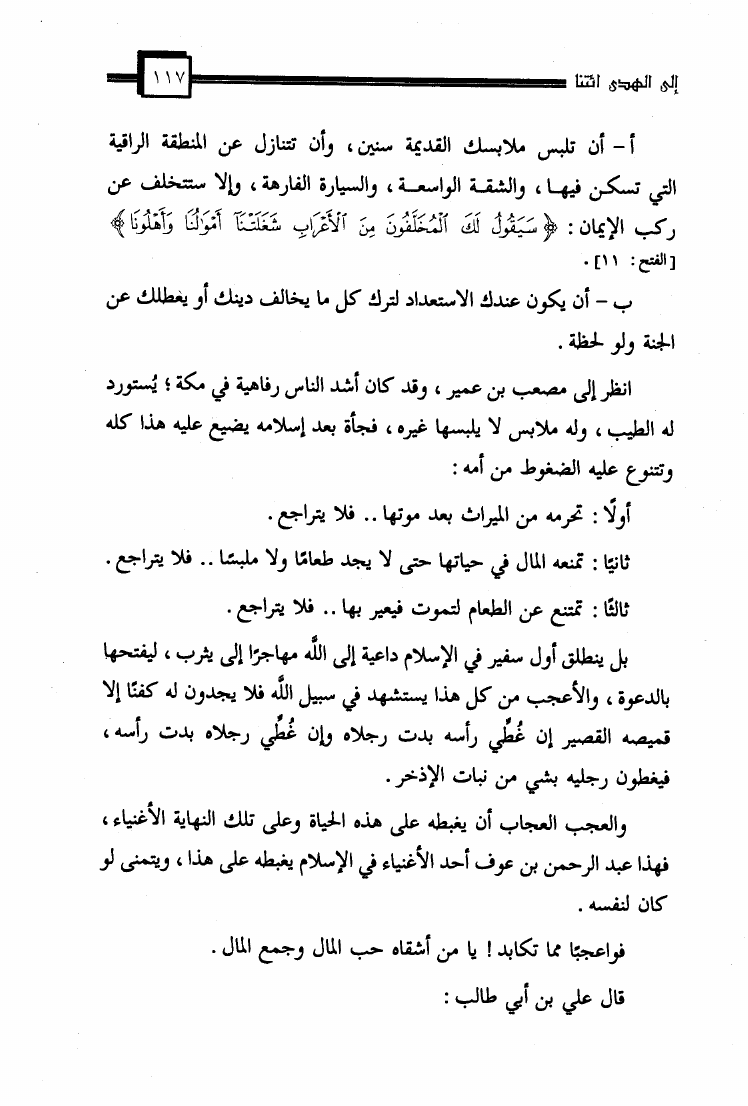 إلى الهدى ائتنا ١١٧
أ- أن تلبس ملابسك القديمة سنين، وأن تتنازل عن المنطقة الراقية
التي تسكن فيها، والشقة الواسعة، والسيارة الفارهة، وإلا ستتخلف عن
ركب الإيمان: ﴿سَيَقُولُ لَكَ ٱلْمُخَلَّفُونَ مِنَ ٱلْأَعْرَابِ شَغَلَتْنَآ أَمْوَٰلُنَا وَأَهْلُونَا﴾
[الفتح: ١١].
ب- أن يكون عندك الاستعداد لترك كل ما يخالف دينك أو يعطلك عن
الجنة ولو لحظة.
انظر إلى مصعب بن عمير، وقد كان أشد الناس رفاهية في مكة؛ يُستورد
له الطيب، وله ملابس لا يلبسها غيره، فجأة بعد إسلامه يضيع عليه هذا كله
وتتنوع عليه الضغوط من أمه:
أولًا: تحرمه من الميراث بعد موتها.. فلا يتراجع.
ثانيًا: تمنعه المال في حياتها حتى لا يجد طعامًا ولا ملبسًا.. فلا يتراجع.
ثالثًا: تمتنع عن الطعام لتموت فيعير بها.. فلا يتراجع.
بل ينطلق أول سفير في الإسلام داعية إلى اللَّه مهاجرًا إلى يثرب، ليفتحها
بالدعوة، والأعجب من كل هذا يستشهد في سبيل اللَّه فلا يجدون له كفنًا إلا
قميصه القصير إن غُطِّي رأسه بدت رجلاه وإن غُطِّي رجلاه بدت رأسه،
فيغطون رجليه بشي من نبات الإذخر.
والعجب العجاب أن يغبطه على هذه الحياة وعلى تلك النهاية الأغنياء،
فهذا عبد الرحمن بن عوف أحد الأغنياء في الإسلام يغبطه على هذا، ويتمنى لو
كان لنفسه.
فواعجبًا مما تكابد! يا من أشقاه حب المال وجمع المال.
قال علي بن أبي طالب: